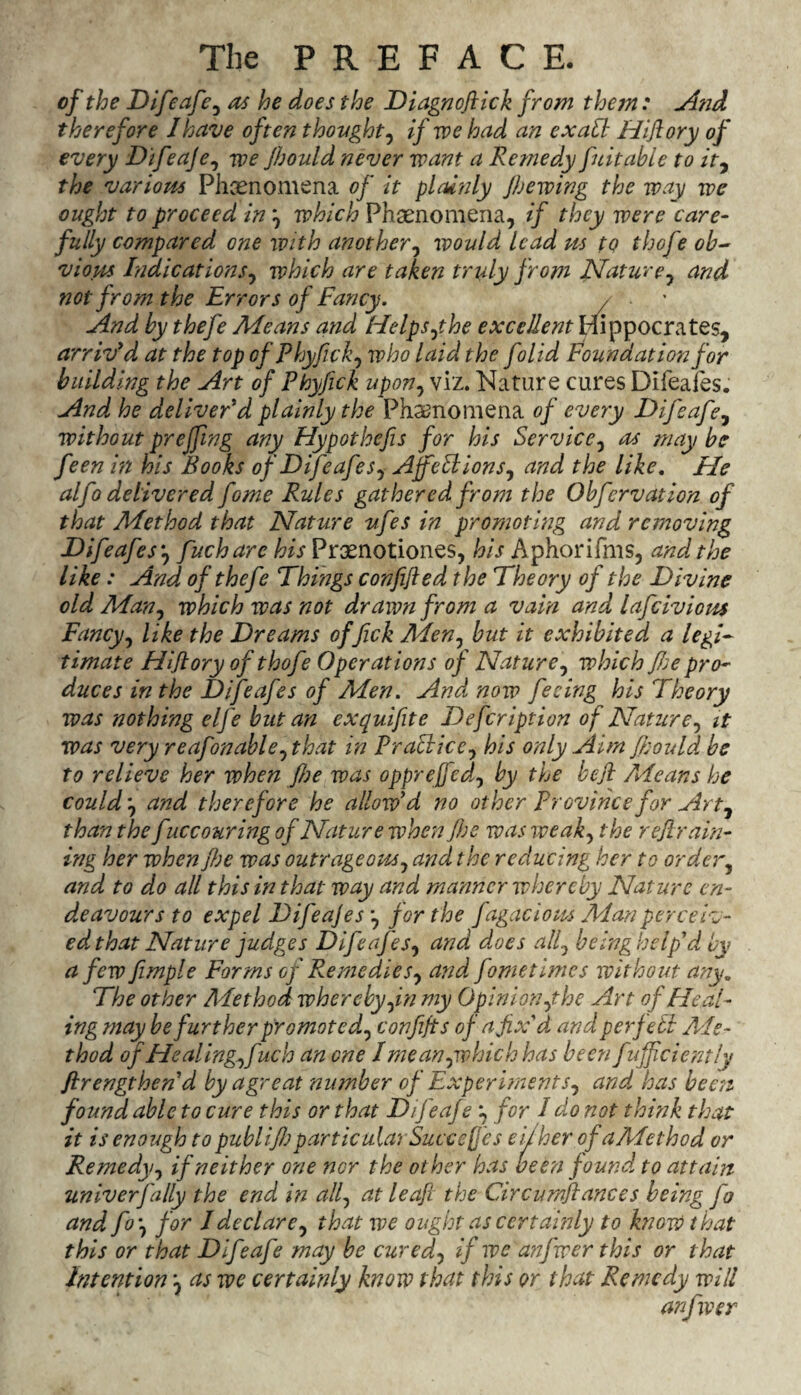 The PREFACE.
of the Diſeaſe, as he does the Diagnoſtick from them: And
therefore I have often thought, if we had an exact Hiſtory of
every Diſeaſe, we ſhould never want a Remedy ſuitable to it,
the various Phænomena of it plainly ſhewing the way we
ought to proceed in; which Phænomena, if they were care-
fully compared one with another, would lead us to thoſe ob-
vious Indications, which are taken truly from Nature, and
not from the Errors of Fancy.
And by theſe Means and Helps, the excellent Hippocrates,
arriv'd at the top of Phyſick, who laid the ſolid Foundation for
building the Art of Phyſick upon, viz. Nature cures Diſeaſes.
And he deliver'd plainly the Phænomena of every Diſeaſe,
without preſſing any Hypotheſis for his Service, as may be
ſeen in his Books of Diſeaſes, Affections, and the like. He
alſo delivered ſome Rules gathered from the Obſervation of
that Method that Nature uſes in promoting and removing
Diſeaſes; ſuch are his Prænotiones, his Aphoriſms, and the
like: And of theſe Things conſiſted the Theory of the Divine
old Man, which was not drawn from a vain and laſcivious
Fancy, like the Dreams of ſick Men, but it exhibited a legi-
timate Hiſtory of thoſe Operations of Nature, which ſhe pro-
duces in the Diſeaſes of Men. And now ſeeing his Theory
was nothing elſe but an exquiſite Deſcription of Nature, it
was very reaſonable, that in Practice, his only Aim ſhould be
to relieve her when ſhe was oppreſſed, by the beſt Means he
could; and therefore he allow'd no other Province for Art,
than the ſuccouring of Nature when ſhe was weak, the reſtrain-
ing her when ſhe was outrageous, and the reducing her to order,
and to do all this in that way and manner whereby Nature en-
deavours to expel Diſeaſes; for the ſagacious Man perceiv-
ed that Nature judges Diſeaſes, and does all, being help'd by
a few ſimple Forms of Remedies, and ſometimes without any.
The other Method whereby, in my Opinion, the Art of Heal-
ing may be further promoted, conſiſts of a fix'd and perfect Me-
thod of Healing, ſuch an one I mean, which has been ſufficiently
ſtrengthen'd by a great number of Experiments, and has been
found able to cure this or that Diſeaſe; for I do not think that
it is enough to publiſh particular Succeſſes either of a Method or
Remedy, if neither one nor the other has been found to attain
univerſally the end in all, at leaſt the Circumſtances being ſo
and ſo; for I declare, that we ought as certainly to know that
this or that Diſeaſe may be cured, if we anſwer this or that
Intention; as we certainly know that this or that Remedy will
anſwer